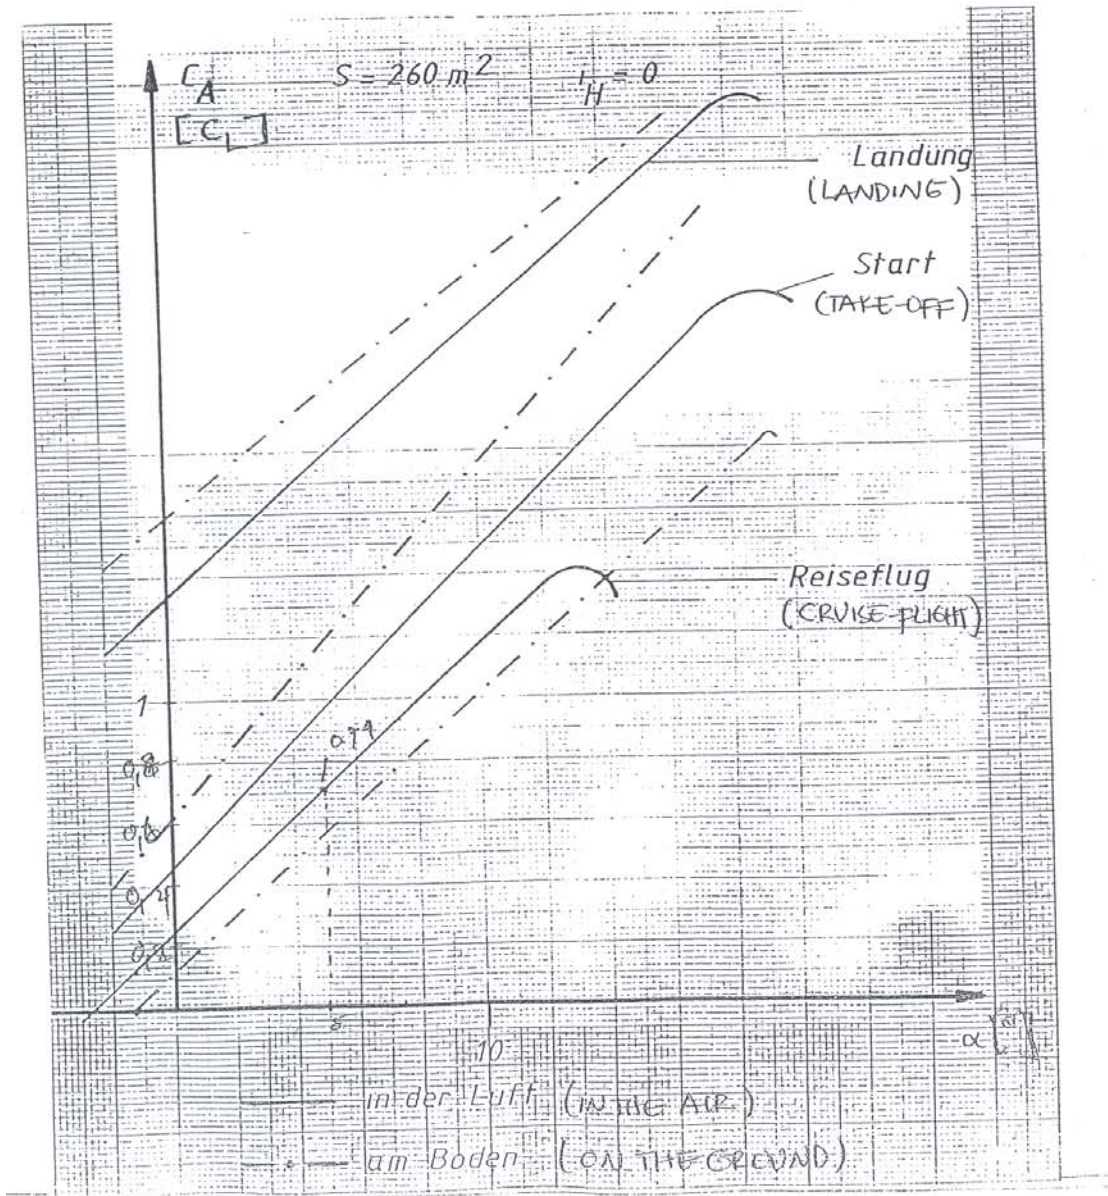 C_A S = 260 m² i_H = 0
[C_L]
Landung
(LANDING)
Start
(TAKE-OFF)
Reiseflug
(CRUISE-FLIGHT)
1
0,8
0,6
0,4
5
10
α
in der Luft (IN THE AIR)
am Boden (ON THE GROUND)